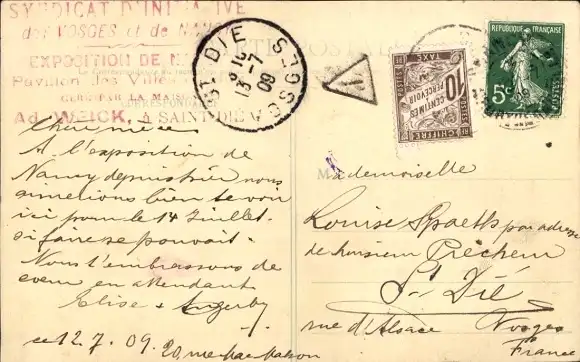 SYNDICAT D'INITIATIVE
des VOSGES et de NANCY
EXPOSITION DE
Pavillon des
PAR LA MAISON
CORRESPONDANCE
Ad. WEICK, à SAINT-DIÉ
ST DIÉ
13 -7
09
VOSGES
T
10
CENTIMES
À PERCEVOIR
CHIFFRE
TAXE
REPUBLIQUE FRANÇAISE
5c
A l'exposition de
Nancy depuis hier nous
aimerions bien te voir
ici pour le 14 Juillet.
si faire se pouvait.
Nous t'embrassons de
coeur en attendant
Elise &
ce 12.7.09. 20,
Mademoiselle
Louise Spaeth par adresse
de Monsieur Préchem
St Dié
rue d'Alsace Vosges
France